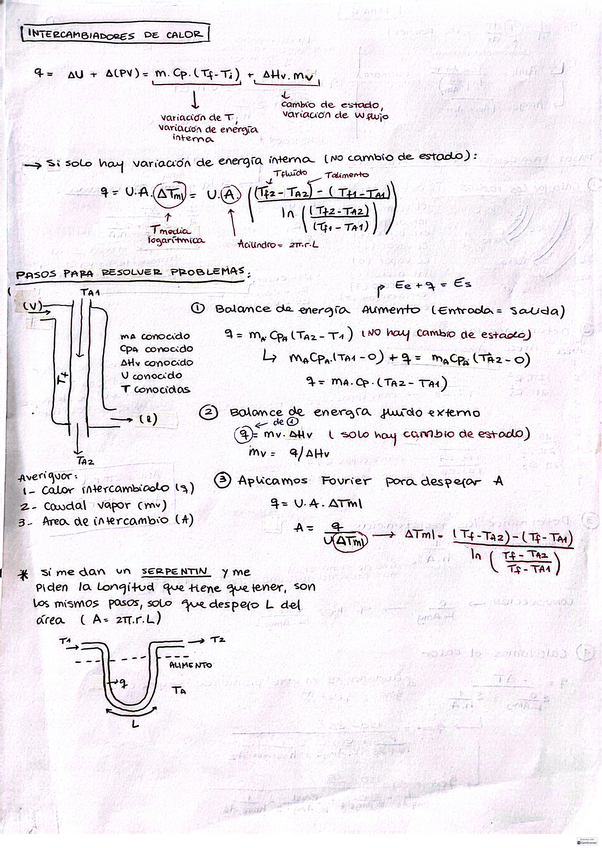 INTERCAMBIADORES DE CALOR
q = ΔU + Δ(PV) = m.Cp.(Tf-Ti) + ΔHv.mv
variación de T,
variación de energía
interna
cambio de estado,
variación de W flujo
→ Si solo hay variación de energía interna (NO cambio de estado):
Tfluido Talimento
q = U.A.(ΔTml) = U.(A).((Tf2-TA2)-(Tf1-TA1) / ln((Tf2-TA2)/(Tf1-TA1)))
Tmedia
logarítmica
Acilindro = 2π.r.L
PASOS PARA RESOLVER PROBLEMAS:
TA1
(V)
Tf
(l)
TA2
mA conocido
CpA conocido
ΔHv conocido
U conocido
T conocidas
Averiguar:
1- Calor intercambiado (q)
2- Caudal vapor (mv)
3- Area de intercambio (A)
Ee + q = Es
① Balance de energía Alimento (Entrada = Salida)
q = mA CpA (TA2-T1) (NO hay cambio de estado)
↳ mA CpA.(TA1-0) + q = mA CpA (TA2-0)
q = mA.Cp.(TA2-TA1)
② Balance de energía fluido externo
de ①
q = mv.ΔHv (solo hay cambio de estado)
mv = q/ΔHv
③ Aplicamos Fourier para despejar A
q = U.A.ΔTml
A = q / U(ΔTml) → ΔTml = (Tf-TA2)-(Tf-TA1) / ln((Tf-TA2)/(Tf-TA1))
* Si me dan un SERPENTIN y me
piden la longitud que tiene que tener, son
los mismos pasos, solo que despejo L del
área (A = 2π.r.L)
T1 T2
ALIMENTO
q
TA
L